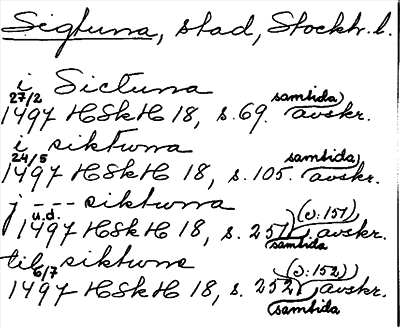 Sigtuna, stad, Stockh. l.
i Sictuna
27/2 samtida
1497 HSkH 18, s. 69. avskr.
i siktuna
24/5 samtida
1497 HSkH 18, s. 105. avskr.
j --- siktuna
u.d. (o: 151)
1497 HSkH 18, s. 251, avskr.
samtida
til siktuna
6/7 (o: 152)
1497 HSkH 18, s. 252, avskr.
samtida